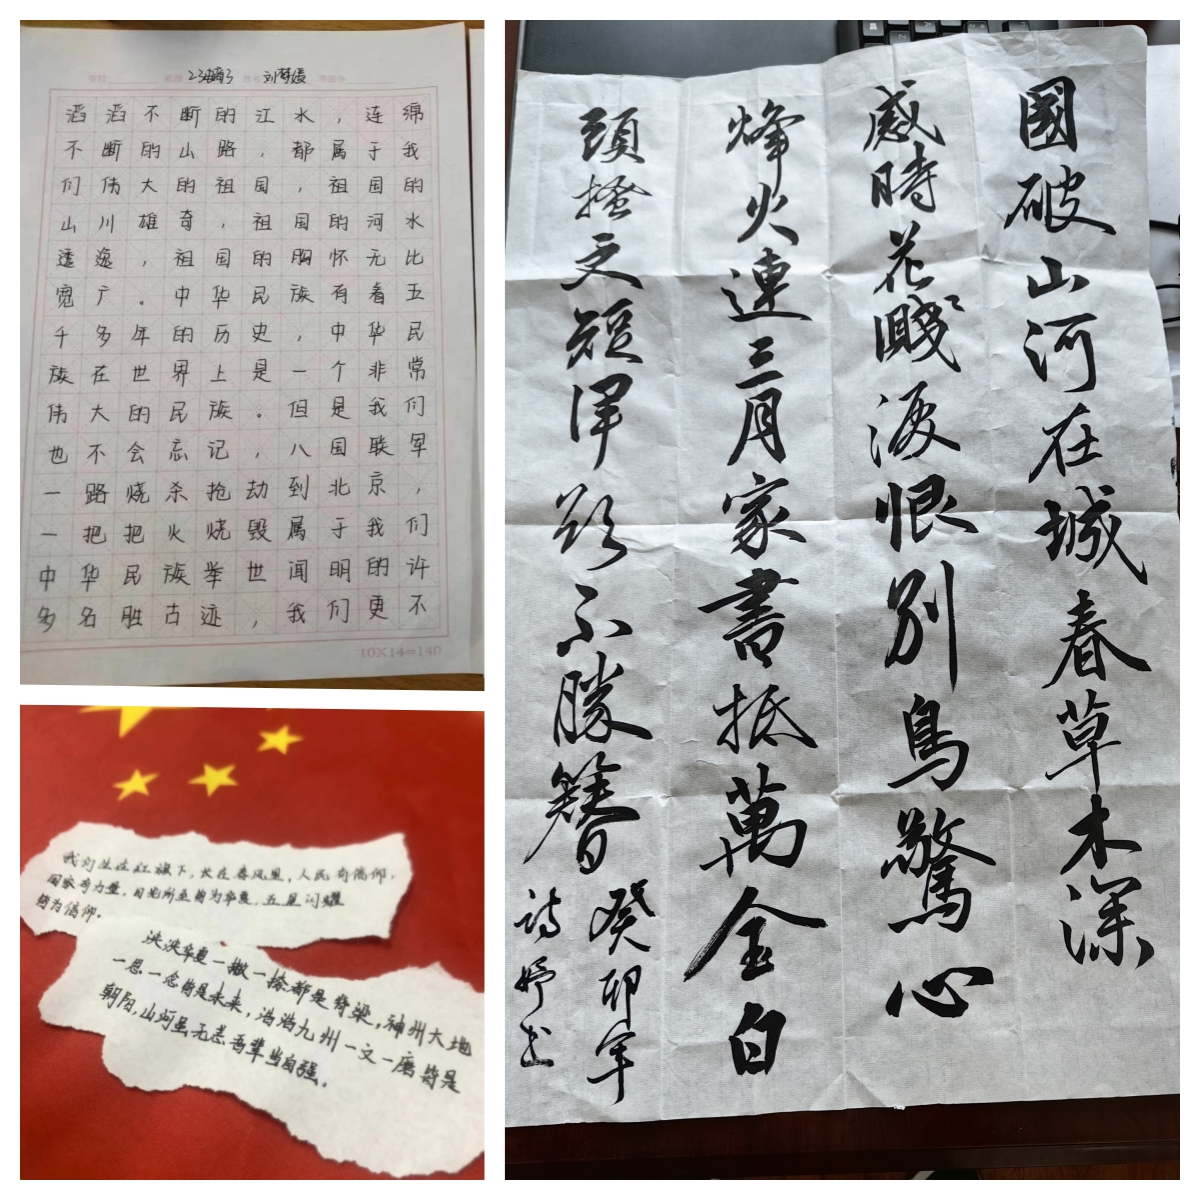 刘梦媛
滔滔不断的江水，连绵
不断的山路，都属于我
们伟大的祖国，祖国的
山川雄奇，祖国的河水
透逸，祖国的胸怀无比
宽广。中华民族有着五
千多年的历史，中华民
族在世界上是一个非常
伟大的民族。但是我们
也不会忘记，八国联军
一路烧杀抢劫到北京，
一把把火烧毁属于我们
中华民族举世闻明的许
多名胜古迹，我们更不
10X14=140
我们生在红旗下，长在春风里，人民有信仰，
国家有力量，目光所至皆为华夏，五星闪耀
皆为信仰。
泱泱华夏一撇一捺都是脊梁，神州大地
一思一念皆是未来，浩浩九州一文一磨皆是
朝阳，山河虽无恙吾辈当自强。
國破山河在城春草木深
感時花濺淚恨别鳥驚心
烽火連三月家書抵萬金白
頭搔更短渾欲不勝簪
癸卯年
诗妤书